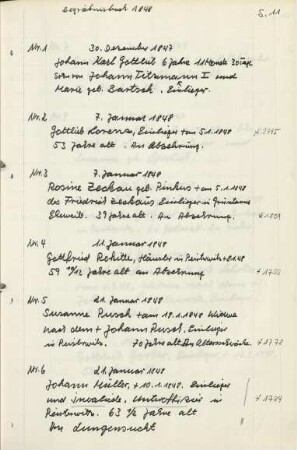 Begräbnisbuch 1848 S. 11
Nr. 1 30. Dezember 1847
Johann Karl Gottlieb 6 Jahre 11 Monde 30 Tage
Sohn von Johann Titzmann I und
Marie geb. Bartsch. Einlieger.
Nr. 2 7. Januar 1848
Gottlieb Lorenz, Einlieger + am 5.1.1848 * 1795
53 Jahre alt. An Abzehrung.
Nr. 3 7. Januar 1848
Rosine Zechau geb. Pinkus + am 5.1.1848
des Friedrich Zechaus Einlieger in
Eheweib. 39 Jahre alt. An Abzehrung. * 1809
Nr. 4 11. Januar 1848
Gottfried Rokitte, Häusler in
59 Jahre alt an Abzehrung * 1788
Nr. 5 21. Januar 1848
Susanne Rusch + am 18.1.1848 Witwe
nach dem + Johann Rusch. Einlieger
in 70 Jahre alt An Altersschwäche. * 1778
Nr. 6 21. Januar 1848
Johann Müller, + 10.1.1848. Einlieger
und Invalide, Unteroffizier in * 1784
63 ½ Jahre alt
An Lungensucht